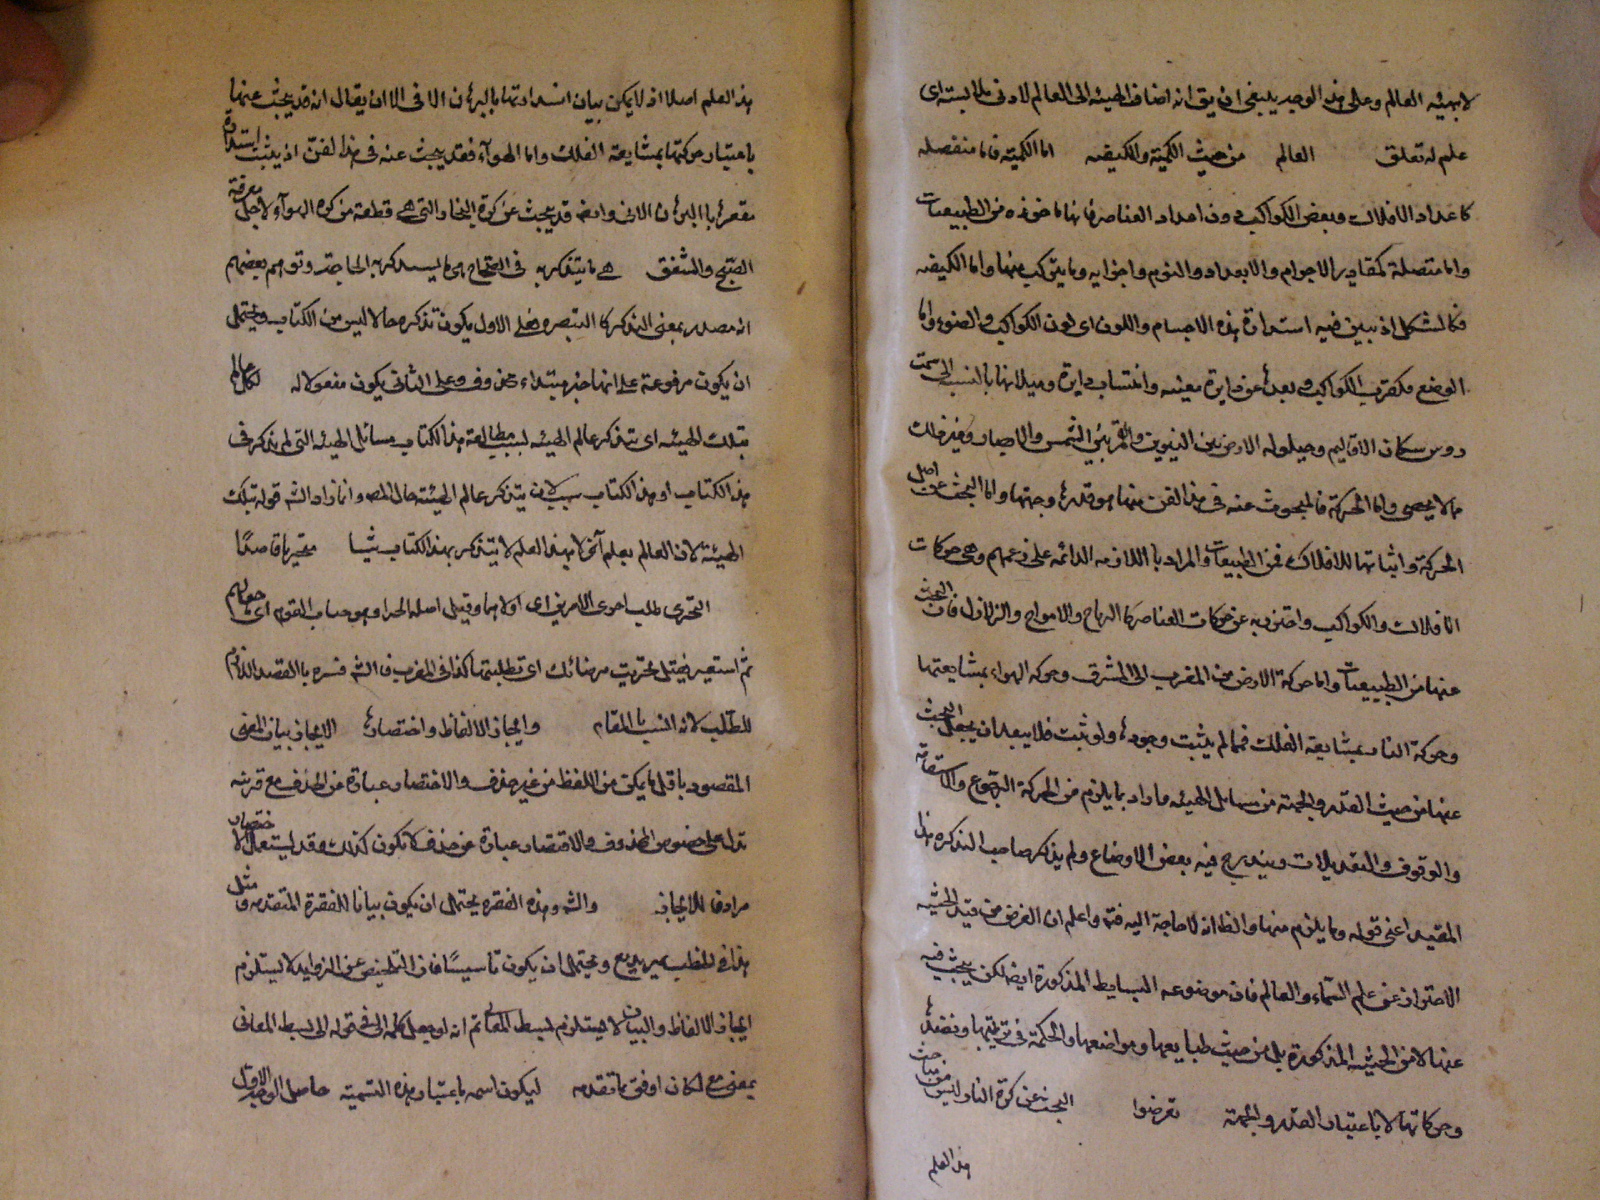 لا بهيئه العالم وعلى هذا الوجه ينبغى ان يق انه اضاف الهيئه الى العالم لادنى ملابسته اى
علم له تعلق العالم من حيث الكمية والكيفيه اما الكمية فاما منفصله
كاعداد الافلاك وبعض الكواكب دون اعداد العناصر فانها ماخوذه من الطبيعيات
واما متصلة كمقادير الاجرام والابعاد واليوم واجزايه وما يتركب منها واما الكيفيه
فكالشكل اذ يبين فيه استدارة هذه الاجسام واللون اى لون الكواكب والضوء واما
الوضع فكقرب الكواكب وبعدها عن دايرة معينه وانتصاب دايرة وميلانها بالنسبة الى سمت
روس سكان الاقاليم وحيلوله الارض بين النيرين والقمر بين الشمس والابصار وغير ذلك
مما لا يحصى واما الحركة فالمبحوث عنه فى هذا الفن منها هو قدرها وجهتها واما البحث عن اصل
الحركة واثباتها للافلاك فمن الطبيعيات والمراد بااللازمه الدائمه على زعمهم وهى حركات
الافلاك والكواكب واحترز به عن حركات العناصر كا الرياح والامواج والزلازل فان البحث
عنها من الطبيعيات واما حركة الارض من المغرب الى المشرق وحركه الهواء بمشايعتها
وحركة النار بمشايعة الفلك فمما لم يثبت وجودها ولو ثبت فلا يبعد ان يجعل البحث
عنها من حيث القدر والجهة من مسايل الهيئه واراد بما يلزم من الحركة الرجوع والاستقامة
والوقوف والتعديلات ويندرج فيه بعض الاوضاع ولم يذكر صاحب التذكره هذا
القيد اعنى قوله وما يلزم منها والظ انه لا حاجة اليه فتم واعلم ان الغرض من قيد الحيثيه
الاحتراز عن علم السماء والعالم فان موضوعه البسايط المذكورة ايضا لكن يبحث فيه
عنها لا من الحيثية المذكورة بل من حيث طبايعها ومواضعها والحكمة فى ترتيبها ونضدها
وحركاتها لا باعتبار القدر والجهة تعرضوا البحث عن كرة النار ليس من مباحث
هذا العلم
هذا العلم اصلا اذ لا يمكن بيان استدارتها بالبرهان الانى الا ان يقال انه قد يبحث عنها
باعتبار حركتها بمشايعة الفلك واما الهوآء فقد يبحث عنه فى هذا الفن اذ يثبت استدارة
مقعرها با البرهان الانى وايضا قد يبحث عن كرة البخار التى هى قطعة من كره الهوآء لاجل معرفة
الصبح والشفق هى ما يتذكر به فى الصحاح هى ما يستذكر به الحاجة وتوهم بعضهم
انه مصدر بمعنى التذكر كا التبصره فعلى الاول يكون تذكره حالا ليس من الكتاب ويحتمل
ان يكون مرفوعة على انها خبر مبتداء محذوف وعلى الثانى يكون مفعولا له لكل عالم
بتلك الهيئه اى يتذكر عالم الهيئه بسبب مطالعة هذا الكتاب مسائل الهيئه التى لم يذكر فى
هذا الكتاب او هذا الكتاب يتذكر عالم الهيئه وانما زاد الشه قوله بتلك
الهيئة لان العالم بعلم آخر لا بهذا العلم لا يتذكر بهذا الكتاب شيا متحريا قاصدا
التحرى طلب احرى الامرين اى اولاهما وقيل اصله الحرا وهو جناب القوم اى حولهم
ثم استعير فقيل تحريت مرضاتك اى تطلبتها كذا فى المغرب فا الشه فسره با القصد اللازم
للطلب لانه انسب بالمقام وايجاز الالفاظ واختصارها الايجاز بيان المعنى
المقصود باقل ما يمكن من اللفظ من غير حذف والاختصار عبارة عن الحذف مع قرينه
تدل على خصوص المحذوف والاقتصار عبارة عن حذف لا يكون كذلك وقد يستعمل الاختصار
مرادفا للايجاز والشه وهذه الفقره يحتمل ان يكون بيانا للفقرة المتقدمه ومثل
هذا فى الخطب غير بديع ويحتمل ان يكون تاسيسا فان التلخيص عن الزوايد لا يستلزم
ايجاز الالفاظ والبيان لا يستلزم بسط المعانى ثم انه لو جعل كلمة الى فى قوله الى بسط المعانى
بمعنى مع لكان اوفق بما تقدمه ليكون اسمه باعتبار هذه التسمية حاصل الوجه الاول